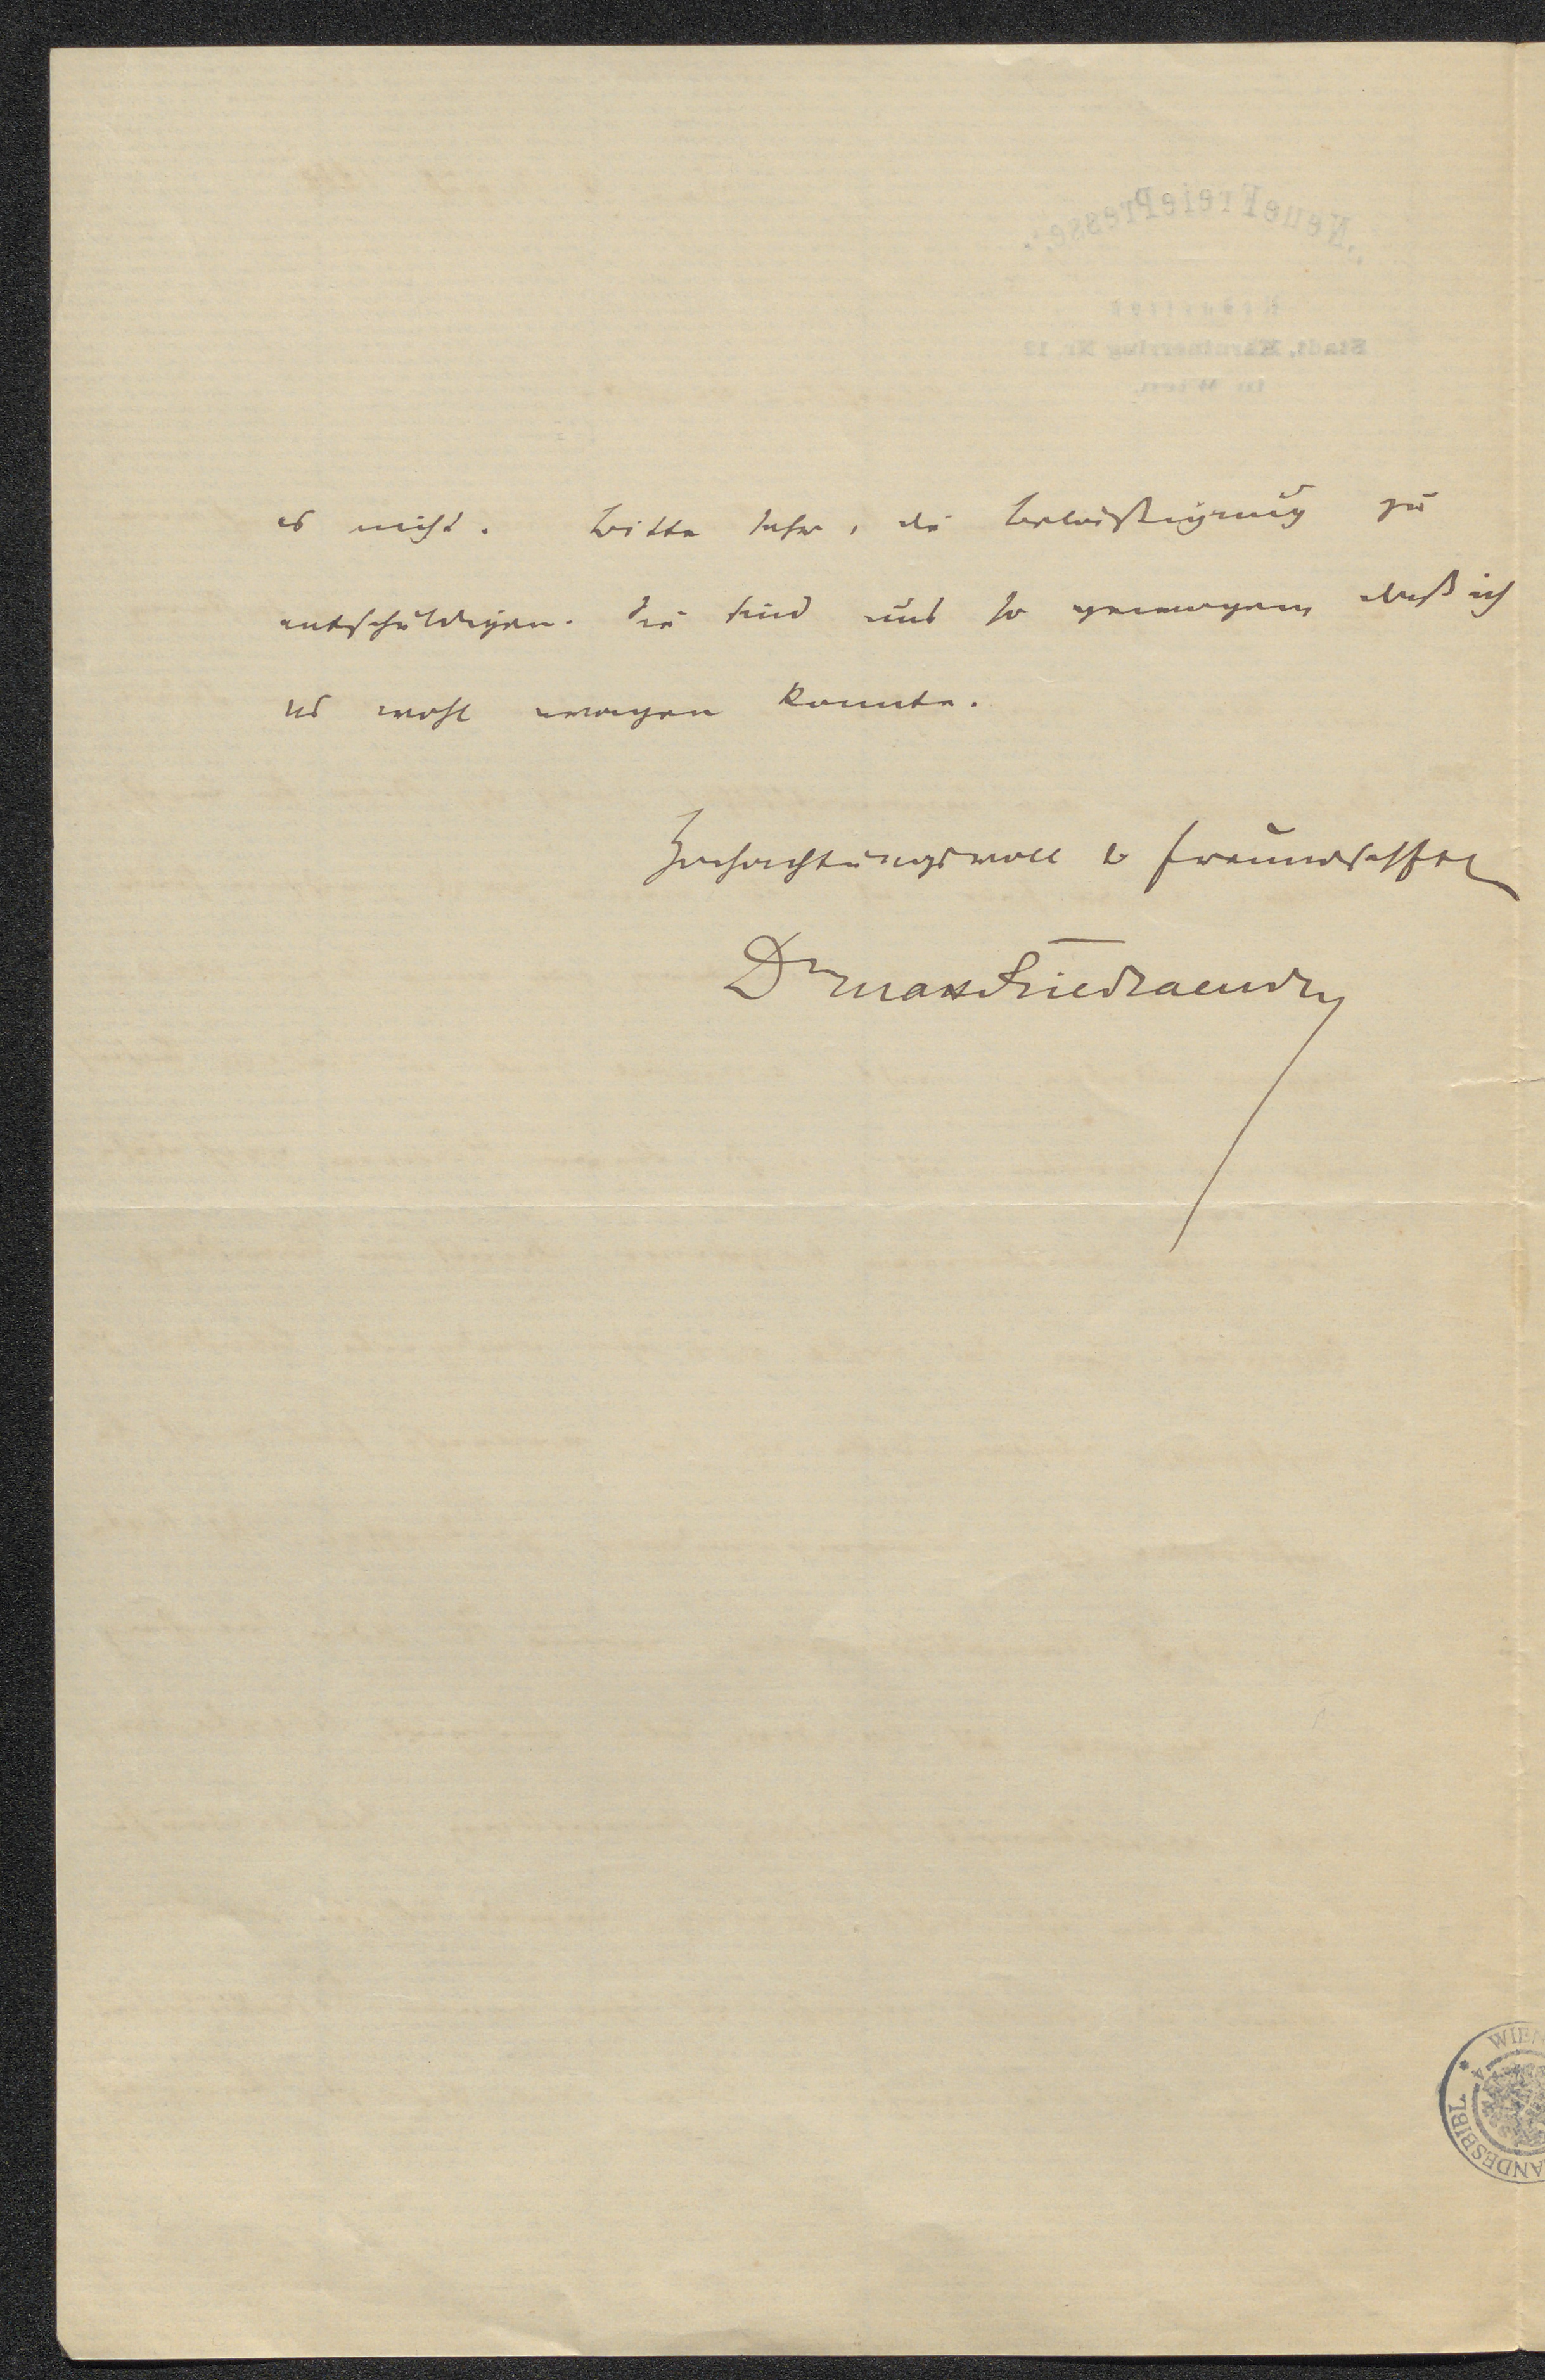 "Neue Freie Presse."
Redaction
Stadt, Kärntnerring Nr. 12
in Wien.
es nicht. Bitte sehr, die Belästigung zu
entschuldigen. Sie sind uns so gewogen daß ich
es wohl wagen konnte.
Hochachtungsvoll & freundschftl
Dr Max Friedlaender
WIEN
LANDESBIBL.